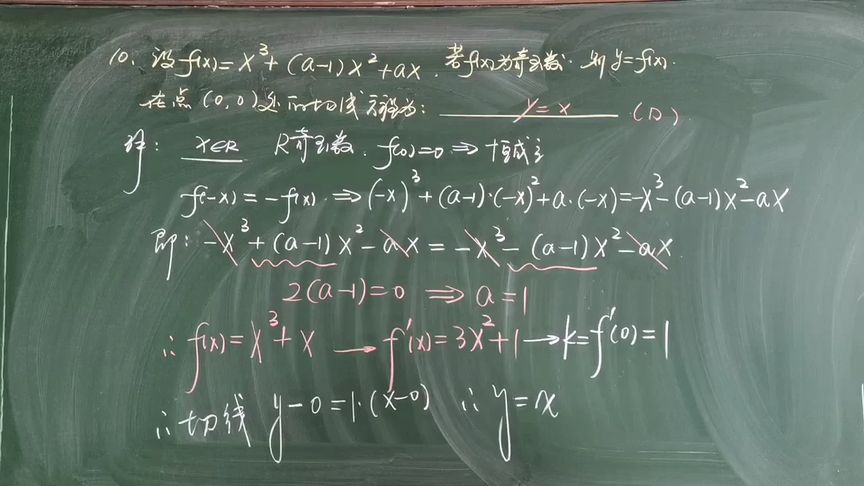 10. 设 f(x)=x³+(a-1)x²+ax. 若f(x)为奇函数. 则y=f(x).
在点(0,0)处的切线方程为: y=x (D)
译: x∈R R奇函数. f(0)=0 ⇒ 恒成立
f(-x)=-f(x) ⇒ (-x)³+(a-1)·(-x)²+a·(-x)=-x³-(a-1)x²-ax
即: -x³+(a-1)x²-ax=-x³-(a-1)x²-ax
2(a-1)=0 ⇒ a=1
∴ f(x)=x³+x → f'(x)=3x²+1 → k=f'(0)=1
∴ 切线 y-0=1·(x-0) ∴ y=x